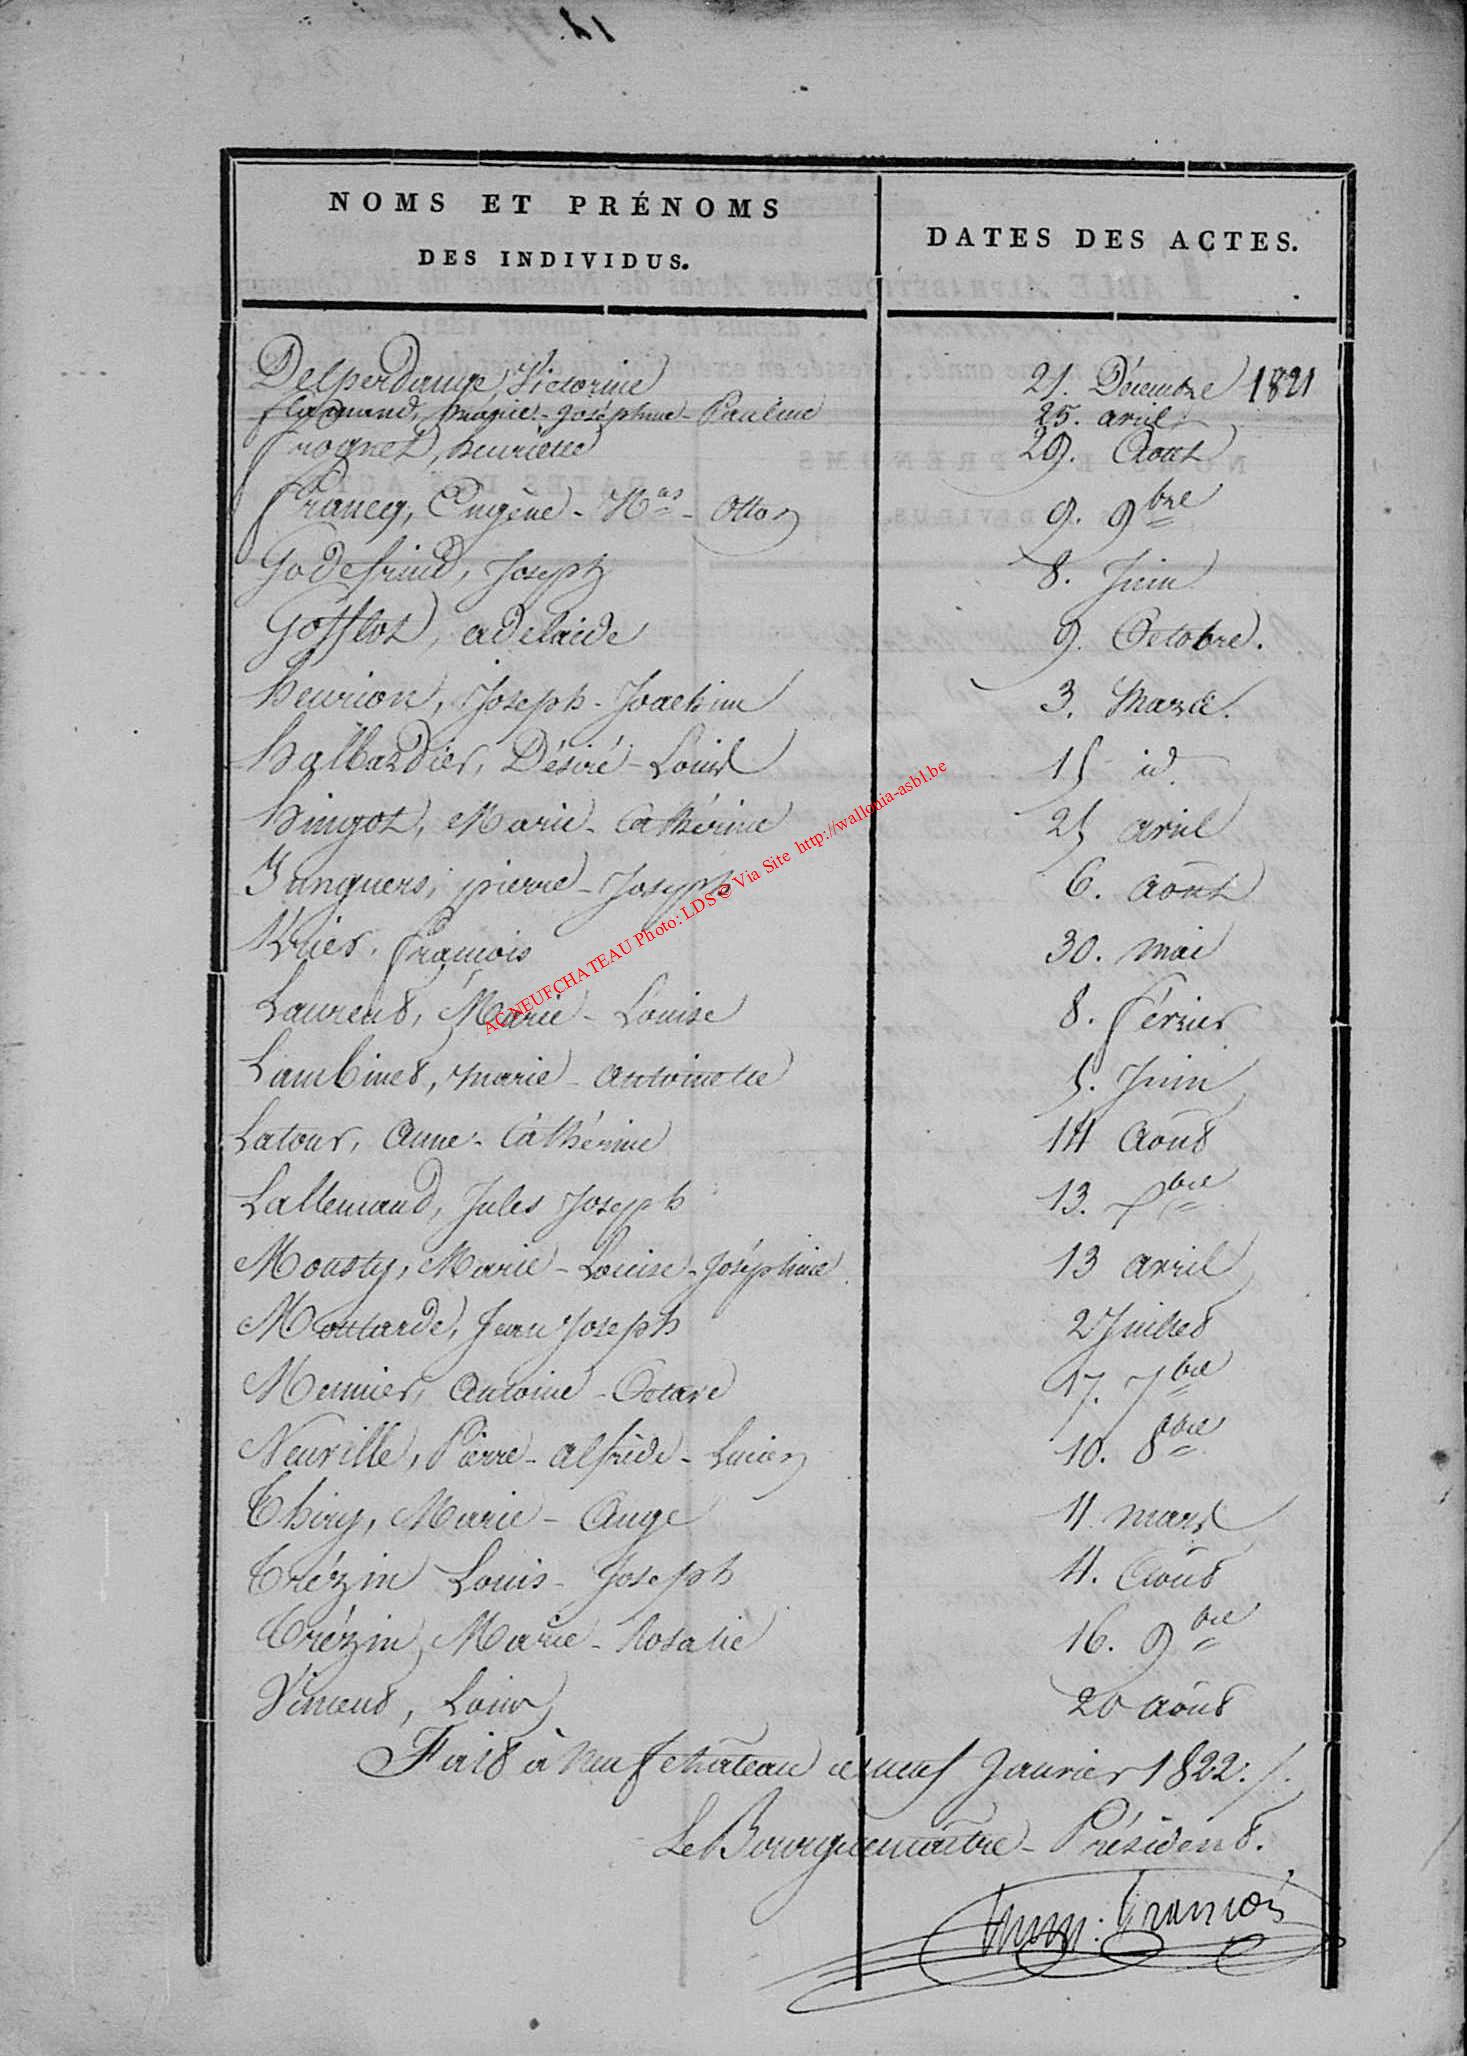 NOMS ET PRÉNOMS
DES INDIVIDUS.
DATES DES ACTES.
Delperdange, Victorine 21. Décembre 1821
flamand, marie-Joséphine-Pauline 25. avril
frognet, henriette 29. Aout
francq, Eugène-Nas-Otton 9. 9bre
Godefrind, Joseph 8. Juin
Gofflot, adelaide 9. Octobre.
henrion, Joseph-Joachim 3. Mars.
halbardier, Désiré-Louis 15 id.
hingot, Marie-Cathérine 25 avril
Junguers, pierre-Joseph 6. août
Krier, françois 30. mai
Laurent, Marie-Louise 8. février
Lambinet, marie-antoinette 5. Juin
Latour, Anne-Cathérine 14 Août
Lallemand, Jules Joseph 13. bre
Mousty, Marie-Louise-Joséphine 13 avril
Moutarde, Jean Joseph 2 Juillet
Meunier, Antoine-Octave 17. 7bre
Neuville, Pierre-alfrède-Lucien 10. 8bre
Thiry, Marie-Ange 11 mars
Trézin Louis-Joseph 11. Août
Trézin, Marie-Rosalie 16. 9bre
Vincent, Louis 20 août
Fait à Neufchâteau ce neuf Janvier 1822./.
Le Bourguemaître-Président.
françois
AC NEUFCHATEAU Photo: LDS © Via Site http://wallonia-asbl.be